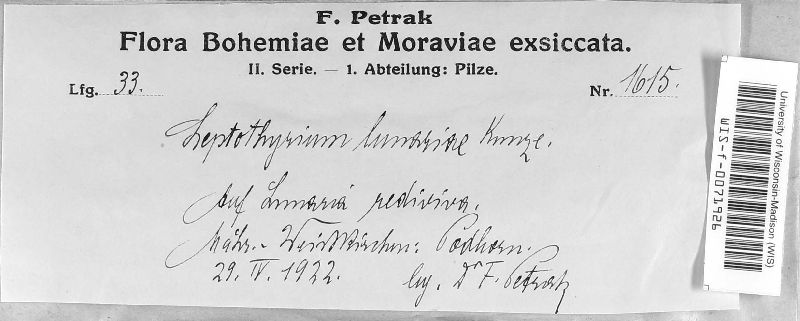 F. Petrak
Flora Bohemiae et Moraviae exsiccata.
II. Serie. — 1. Abteilung: Pilze.
Lfg. 33. Nr. 1615.
Leptothyrium lunariae Kunze.
Auf Lunaria rediviva.
Mähr.-Weisskirchen: Podhorn.
29. IV. 1922. leg. Dr F. Petrak
University of Wisconsin-Madison (WIS)
WIS-f-0071926